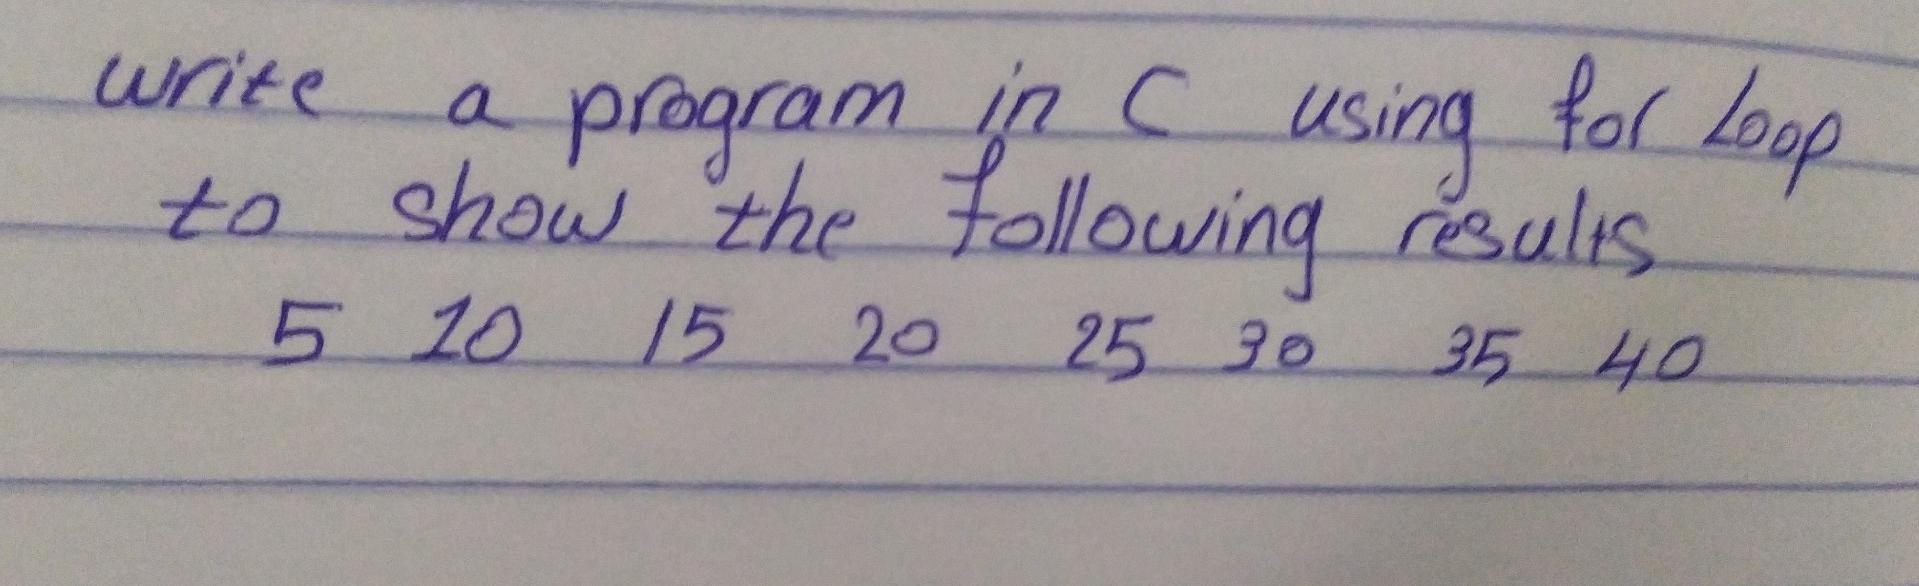 write a program in C using for Loop
to show the following results
5 10 15 20 25 30 35 40